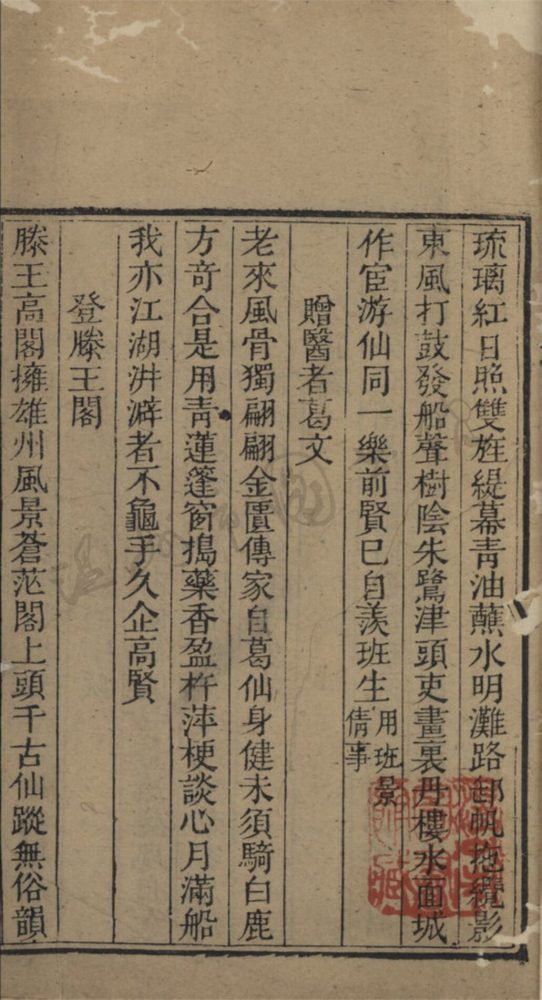 琉璃紅日照雙旌緹幕青油蘸水明灘路卸帆拖纜影
東風打鼓發船聲樹陰朱鷺津頭吏畫裏丹樓水面城
作宦游仙同一樂前賢已自羨班生用班景倩事
贈醫者葛文
老來風骨獨翩翩金匱傳家自葛仙身健未須騎白鹿
方奇合是用青蓮篷窗搗藥香盈杵萍梗談心月滿船
我亦江湖洴澼者不龜手久企高賢
登滕王閣
滕王高閣擁雄州風景蒼茫閣上頭千古仙蹤無俗韻